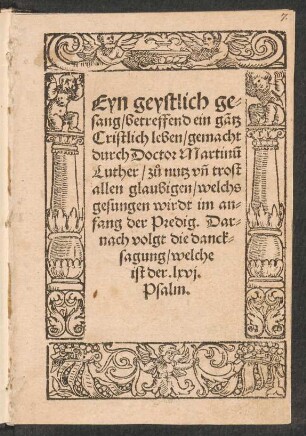 7.
Eyn geystlich ge-
sang/betreffend ein gātz
Cristlich leben/gemacht
durch Doctor Martinū
Luther/zů nutz vñ trost
allen glaubigen/welchs
gesungen wirdt im an-
fang der Predig. Dar-
nach volgt die danck-
sagung/welche
ist der .lxvj.
Psalm.